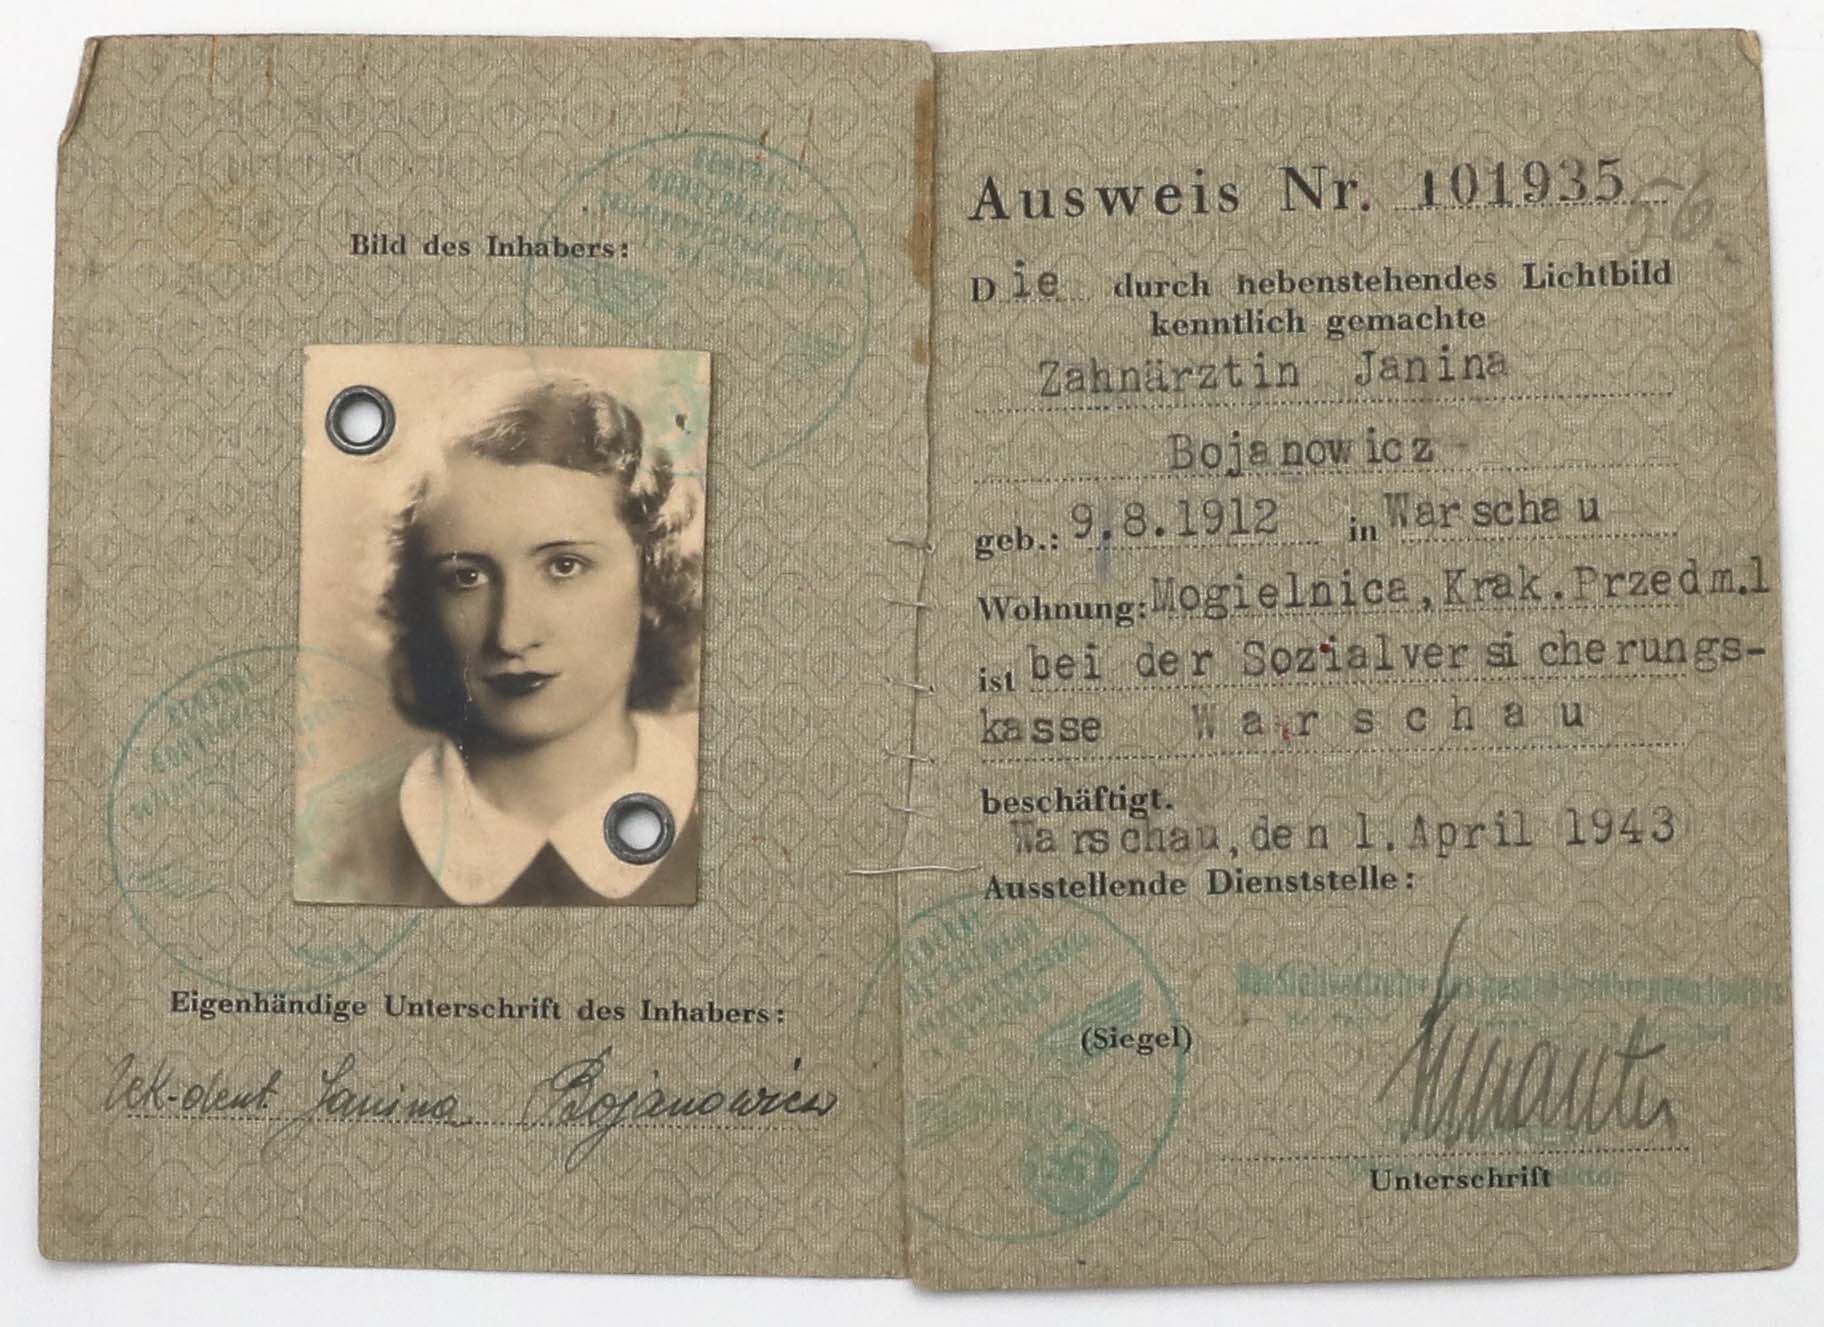 Bild des Inhabers:
Eigenhändige Unterschrift des Inhabers:
lek-dent. Janina Bojanowicz
Ausweis Nr. 101935
56.
Die durch nebenstehendes Lichtbild
kenntlich gemachte
Zahnärztin Janina
Bojanowicz
geb.: 9.8.1912 in Warschau
Wohnung: Mogielnica, Krak. Przedm.1
ist bei der Sozialversicherungs-
kasse Warschau
beschäftigt.
Warschau, den 1. April 1943
Ausstellende Dienststelle:
(Siegel)
Unterschrift